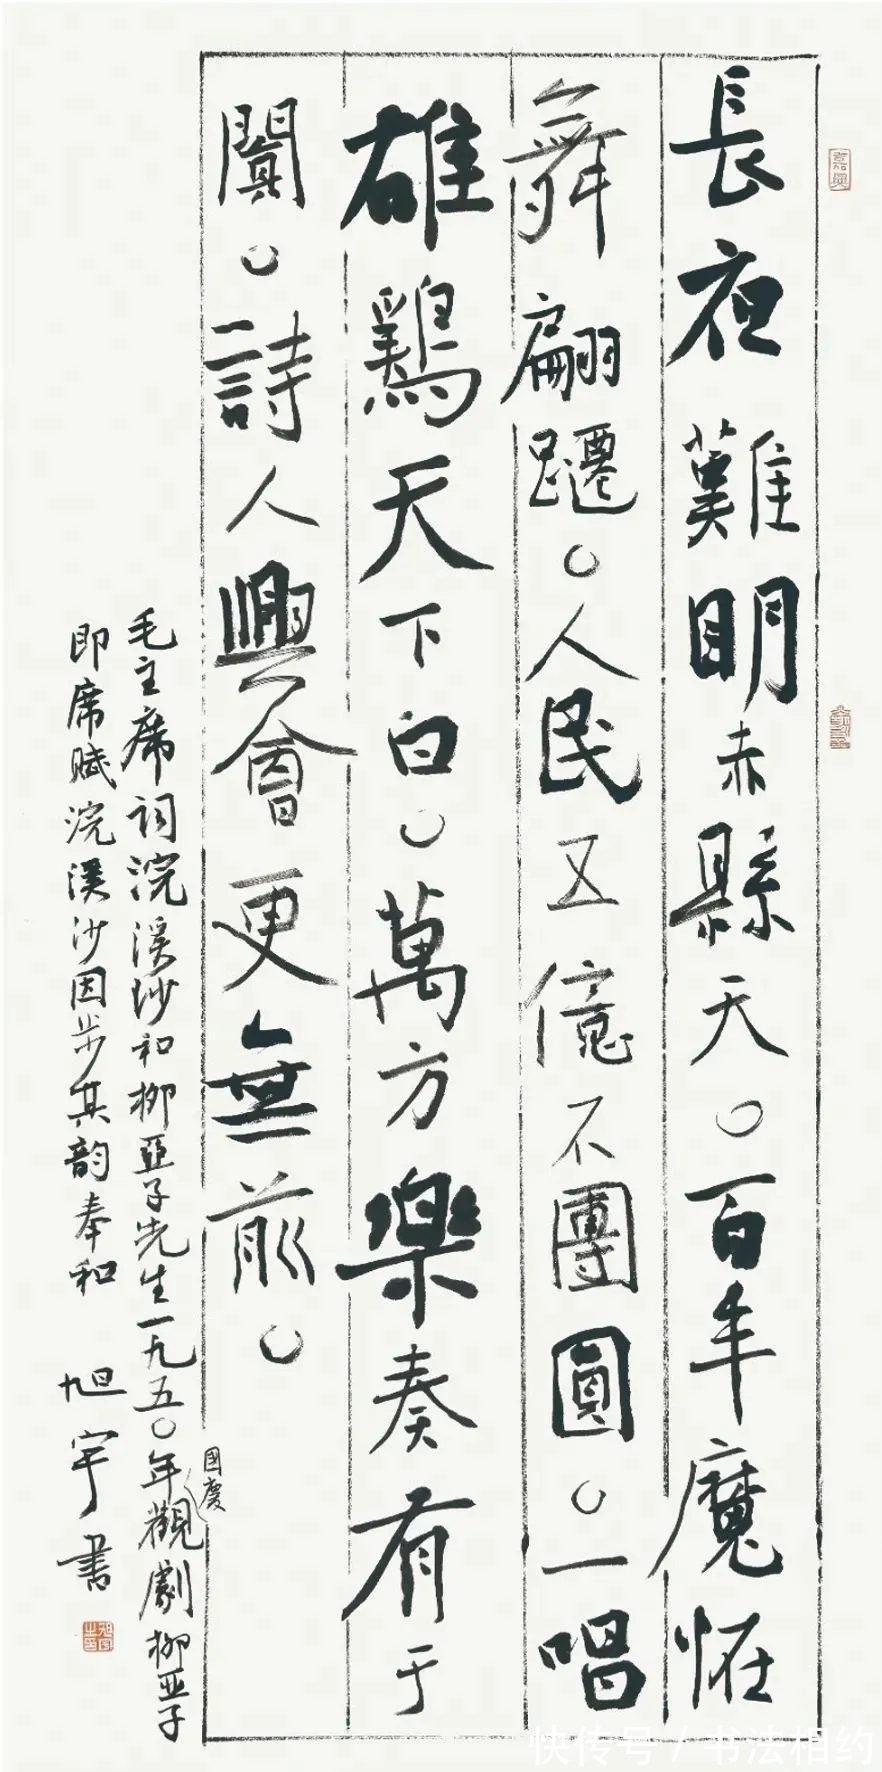 長夜難明赤縣天。百年魔怪
舞翩躚。人民五億不團圓。一唱
雄鷄天下白。萬方樂奏有于
闐。詩人興會更無前。
毛主席詞浣溪沙和柳亞子先生一九五〇年國慶觀劇柳亞子
即席賦浣溪沙因步其韵奉和 旭宇書
快传号 / 书法相约